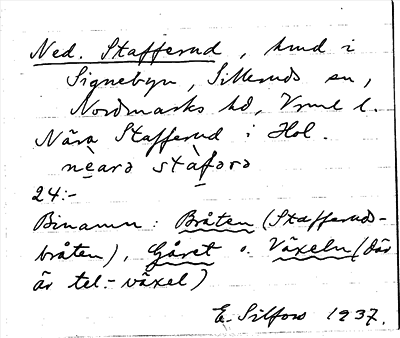 Ned. Stafferud, hmd i
Signebyn, Silleruds sn,
Nordmarks hd, Vrml l.
Nära Stafferud i Hol.
nèarə stàfərə
24:-
Binamn: Bråten (Stafferuds-
bråten), Gåret o. Växeln (där
är tel.-växel)
E. Silfors 1937.